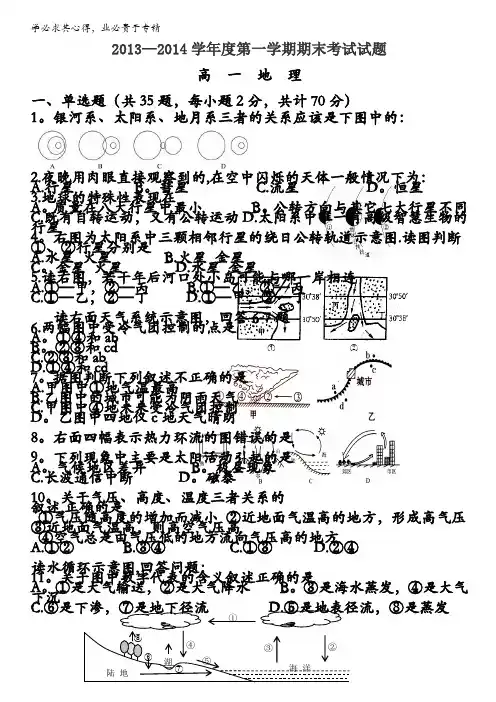 学必求其心得，业必贵于专精
2013—2014学年度第一学期期末考试试题
高 一 地 理
一、单选题（共35题，每小题2分，共计70分）
1。银河系、太阳系、地月系三者的关系应该是下图中的：
A B C D
2.夜晚用肉眼直接观察到的,在空中闪烁的天体一般情况下为：
A.行星 B。彗星 C.流星 D。恒星
3.地球的特殊性表现在
A。质量在八大行星中最小 B。公转方向与其它七大行星不同
C.既有自转运动，又有公转运动 D.太阳系中唯一有高级智慧生物的
行星
4。右图为太阳系中三颗相邻行星的绕日公转轨道示意图.读图判断
①、②行星分别是
A.水星 火星 B.火星 金星
C。金星 火星 D.水星 金星
5.读右图，若干年后河口处小岛可能与哪一岸相连
A.①—甲；②—丙 B.①—乙；②—丙
C.①—乙；②—丁 D.①—甲；②—丁
30°38′ 30°50′
30°50′ 30°38′
① ②
读右面天气系统示意图，回答6-7题
6.两幅图中受冷气团控制的点是
A。①④和ab
B。②③和cd
C.②③和ab
D.①④和cd
7。据图判断下列叙述不正确的是
A.甲图中①地气温最高
B.乙图中的城市可能为阴雨天气
C.甲图中④地未来受冷气团控制
D。乙图中四地仅c地天气晴朗
④ ② ③
甲
a b c d
城市
乙
8。右面四幅表示热力环流的图错误的是
9。下列现象中主要是太阳活动引起的是
A。气候地区差异 B。极昼现象
C.长波通信中断 D。磁暴
B C D
10。关于气压、高度、温度三者关系的
叙述正确的是
①气压随高度的增加而减小 ②近地面气温高的地方，形成高气压
③近地面气温高，则高空气压高
④空气总是由气压低的地方流向气压高的地方
A.①② B.③④ C.①③ D.②④
读水循环示意图,回答问题：
11。关于图中数字代表的含义叙述正确的是
A。①是大气输送，②是大气降水 B。③是海水蒸发，④是大气
下沉
C.⑥是下渗，⑦是地下径流 D.⑤是地表径流，⑧是蒸发
①
⑧ ④ ③ ②
⑥ 湖 ⑤
陆 地 ⑦ 海 洋